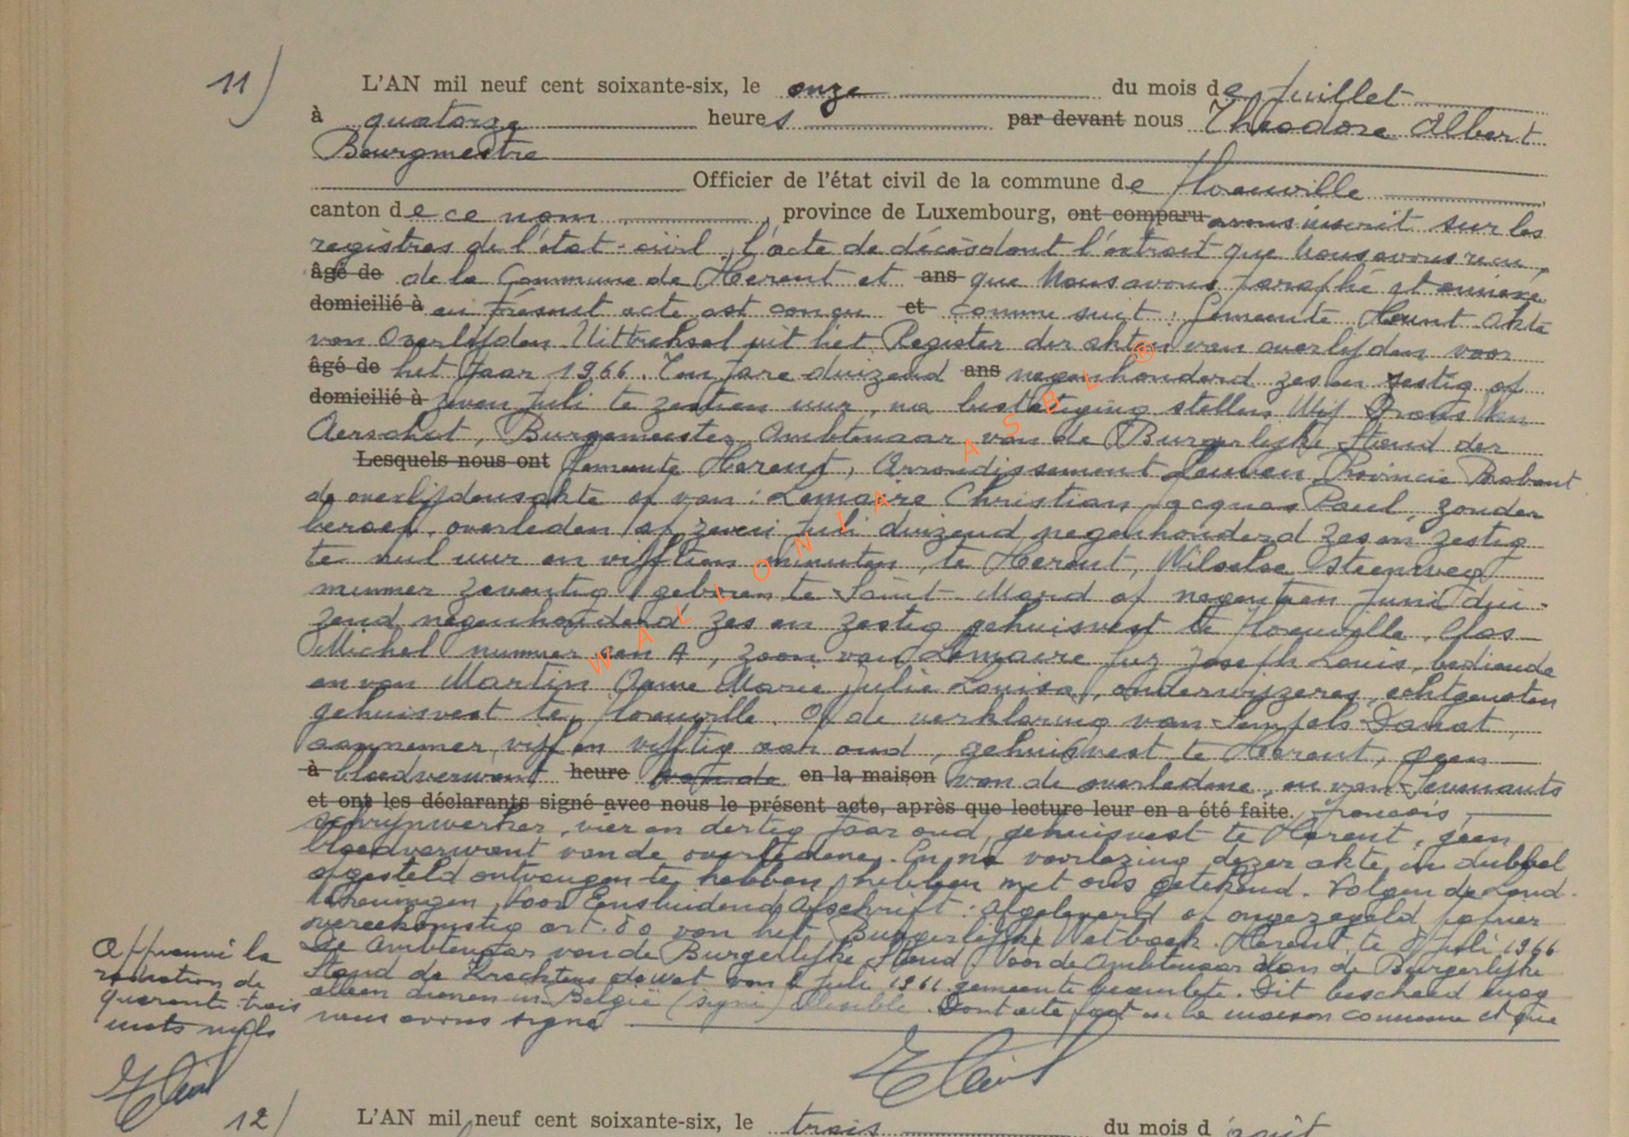 11)
L'AN mil neuf cent soixante-six, le onze du mois de Juillet
à quatorze heures par devant nous Théodore Albert
Bourgmestre
Officier de l'état civil de la commune de Florenville
canton de ce nom, province de Luxembourg, ont comparu avons inscrit sur les
registres de l'état-civil, l'acte de décès dont l'extrait que Nous avons reçu,
âgé de de la Commune de Herent et ans que Nous avons paraphé et annexé
domicilié à au présent acte est conçu et comme suit : Gemeente Herent Akte
van Overlijden Uittreksel uit het Register der akten van overlijden voor
âgé de het Jaar 1966. Ten jare duizend ans negenhonderd zes en zestig op
domicilié à zeven Juli te zestien uur, na bestatiging stellen Wij Frans Van
Aerschot, Burgemeester, Ambtenaar van de Burgerlijke Stand der
Lesquels nous ont Gemeente Herent, Arrondissement Leuven Provincie Brabant
de overlijdensakte op van : Lemaire Christian, Jacques Paul, zonder
beroep, overleden op zeven Juli duizend negenhonderd zes en zestig
te nul uur en vijftien minuten, te Herent, Wilselse Steenweg
nummer zeventig, geboren te Saint-Mard op negentien Juni dui-
zend negenhonderd zes en zestig gehuisvest te Florenville, Clos
Michel nummer een A, zoon van Lemaire Guy Joseph Louis, bediende
en van Martin Anne Marie Julie Louisa, onderwijzeres, echtgenoten
gehuisvest te Florenville. Op de verklaring van Sempels Donat,
aannemer, vijf en vijftig jaar oud, gehuisvest te Herent, geen
à bloedverwant heure van de en la maison van de overledene, en van Sevenants
et ont les déclarants signé avec nous le présent acte, après que lecture leur en a été faite. François,
schrijnwerker, vier en dertig Jaar oud, gehuisvest te Herent, geen
bloedverwant van de overledene. En, na voorlezing dezer akte, in dubbel
opgesteld ontvangen te hebben, hebben met ons getekend. Volgen de hand-
tekeningen, Voor Eensluidend Afschrift : afgeleverd op ongezegeld papier
overeenkomstig art. 80 van het Burgerlijke Wetboek. Herent, te 8 Juli 1966
De Ambtenaar van de Burgerlijke Stand, Voor de Ambtenaar Van de Burgerlijke
Stand de Krachtens de wet van Juli 1961 gemeente beambte. Dit bescheid mag
alleen dienen in België (signé) illisible. Dont acte fait en la maison commune et que
nous avons signé
Approuvé la
radiation de
quarante-trois
mots nuls
WALLONIA ASBL ®
12/
L'AN mil neuf cent soixante-six, le trois du mois d'août